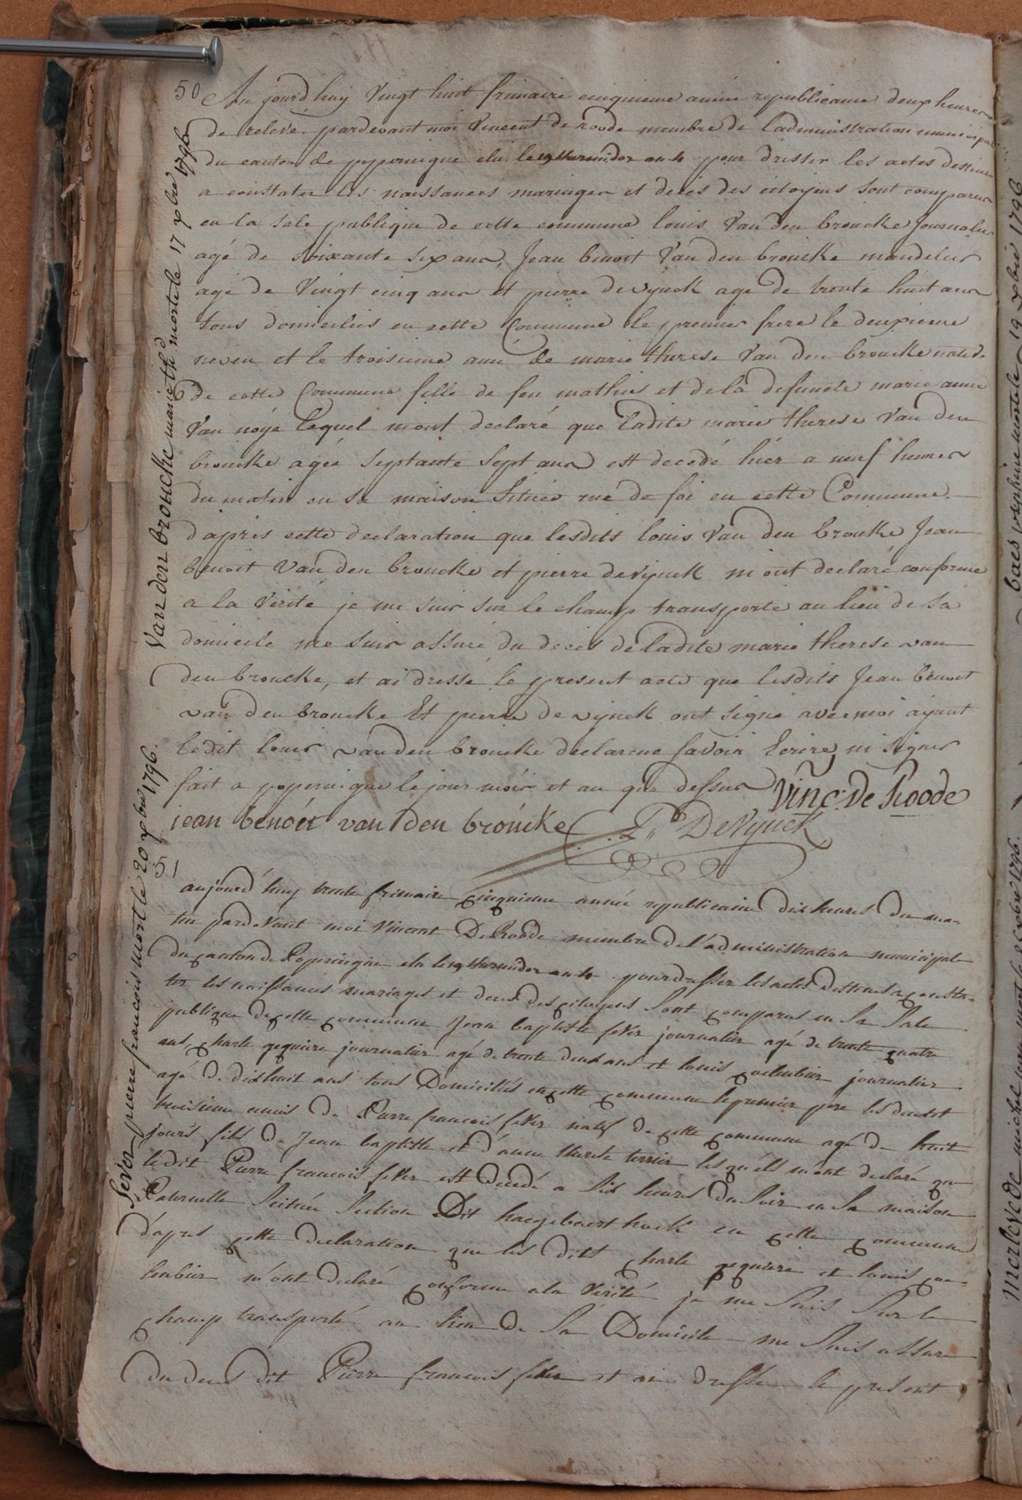 50 Au jourd'huy Vingt huit frimaire cinquieme année republicaine deux heures
de relevé pardevant moi Vincent de roode membre de l'administration municipale
du canton de poperingue elu le 19 thermidor an 4 pour dresser les actes destinés
a constater les naissances mariages et decés des citoyens sont comparus
en la sale publique de cette commune louis Van den broucke Journalier
agé de soixante six ans, Jean benoit Van den broucke mandelier
agé de Vingt cinq ans et pierre devynck agé de trente huit ans
tous domiciliés en cette Commune le premier frere le deuxieme
neveu et le troisieme ami de marie therese Van den broucke native
de cette Commune fille de feu mathieu et de la defuncte marie anne
Van noÿe lequel m'ont declaré que ladite marie therese Van den
broucke agée septante sept ans est decedé hier a neuf heures
du matin en sa maison située rue de foi en cette Commune
d'apres cette declaration que lesdits louis Van den broucke Jean
benoit Van den broucke et pierre devynck m'ont declaré conforme
a la verité je me suis sur le champ transporté au lieu de sa
domicile me suis assuré du decés de ladite marie therese van
den broucke, et ai dressé le present acte que lesdits Jean benoit
van den broucke Et pierre devynck ont signé avec moi ayant
ledit louis van den broucke declaré ne savoir Ecrire ni signer
fait a poperingue le jour mois et an que dessus Vinc: De Roode
jean benoit van den broucke P. DeVynck
Van den broucke marie th: morte le 17 xbre 1796
51
aujourd'huy trente frimaire cinquieme année republicain dix heures du ma-
tin pardevant moi Vincent DeRoode membre de l'administration municipale
du canton de Poperingue elu le 19 thermidor an 4 pour dresser les actes destinés a consta-
ter les naissances mariages et decés des citoyens sont comparus en la Sale
publique de cette commune Jean baptiste feÿer journalier agé de trente quatre
ans charle requiere journalier agé de trente deux ans et louis journalier
agé de dixhuit ans tous Domiciliés en cette commune le premier pere les deux et
troisieme amis de Pierre francois feÿer natif de cette commune agé de huit
jours fils de Jean baptiste et d'anne therese terrier lesquels m'ont declaré que
ledit Pierre francois feÿer est decedé a Six heures du Soir en Sa maison
Paternelle Scituée Section Dit haeghebaert houk en cette commune
D'apres cette declaration que les dits charle requiere et louis
m'ont declaré conforme a la Verité je me Suis Sur le
champ transporté au lieu de Sa Domicile me Suis assuré
du deces dit Pierre francois feÿer et ai dressé le present
feÿer pierre francois mort le 20 xbre 1796.
baes mortele 19 xbre 1796
merlevede michel mort le 1796.